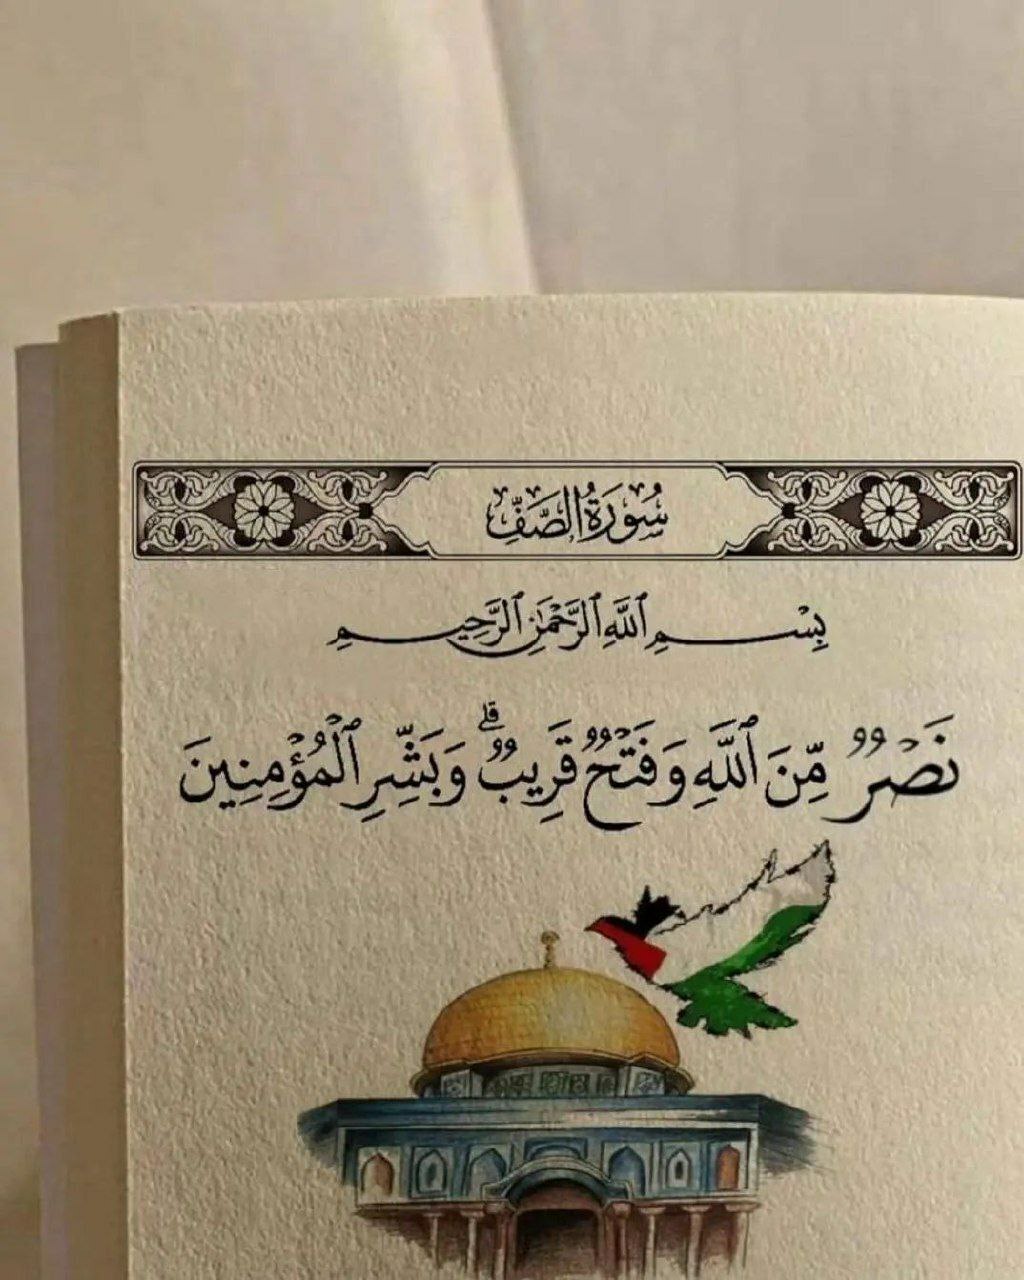 سُورَةُ الصَّفِّ
بِسْمِ ٱللَّهِ ٱلرَّحْمَٰنِ ٱلرَّحِيمِ
نَصْرٌ مِّنَ ٱللَّهِ وَفَتْحٌ قَرِيبٌ ۗ وَبَشِّرِ ٱلْمُؤْمِنِينَ